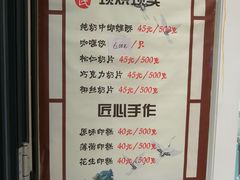 纯奶牛蝴蝶酥 45元/500克
咖喱饺 6元/只
松仁奶片 45元/500克
巧克力奶片 45元/500克
椰丝奶片 45元/500克
匠心手作
原味印糕 40元/500克
薄荷印糕 40元/500克
花生印糕 40元/500克